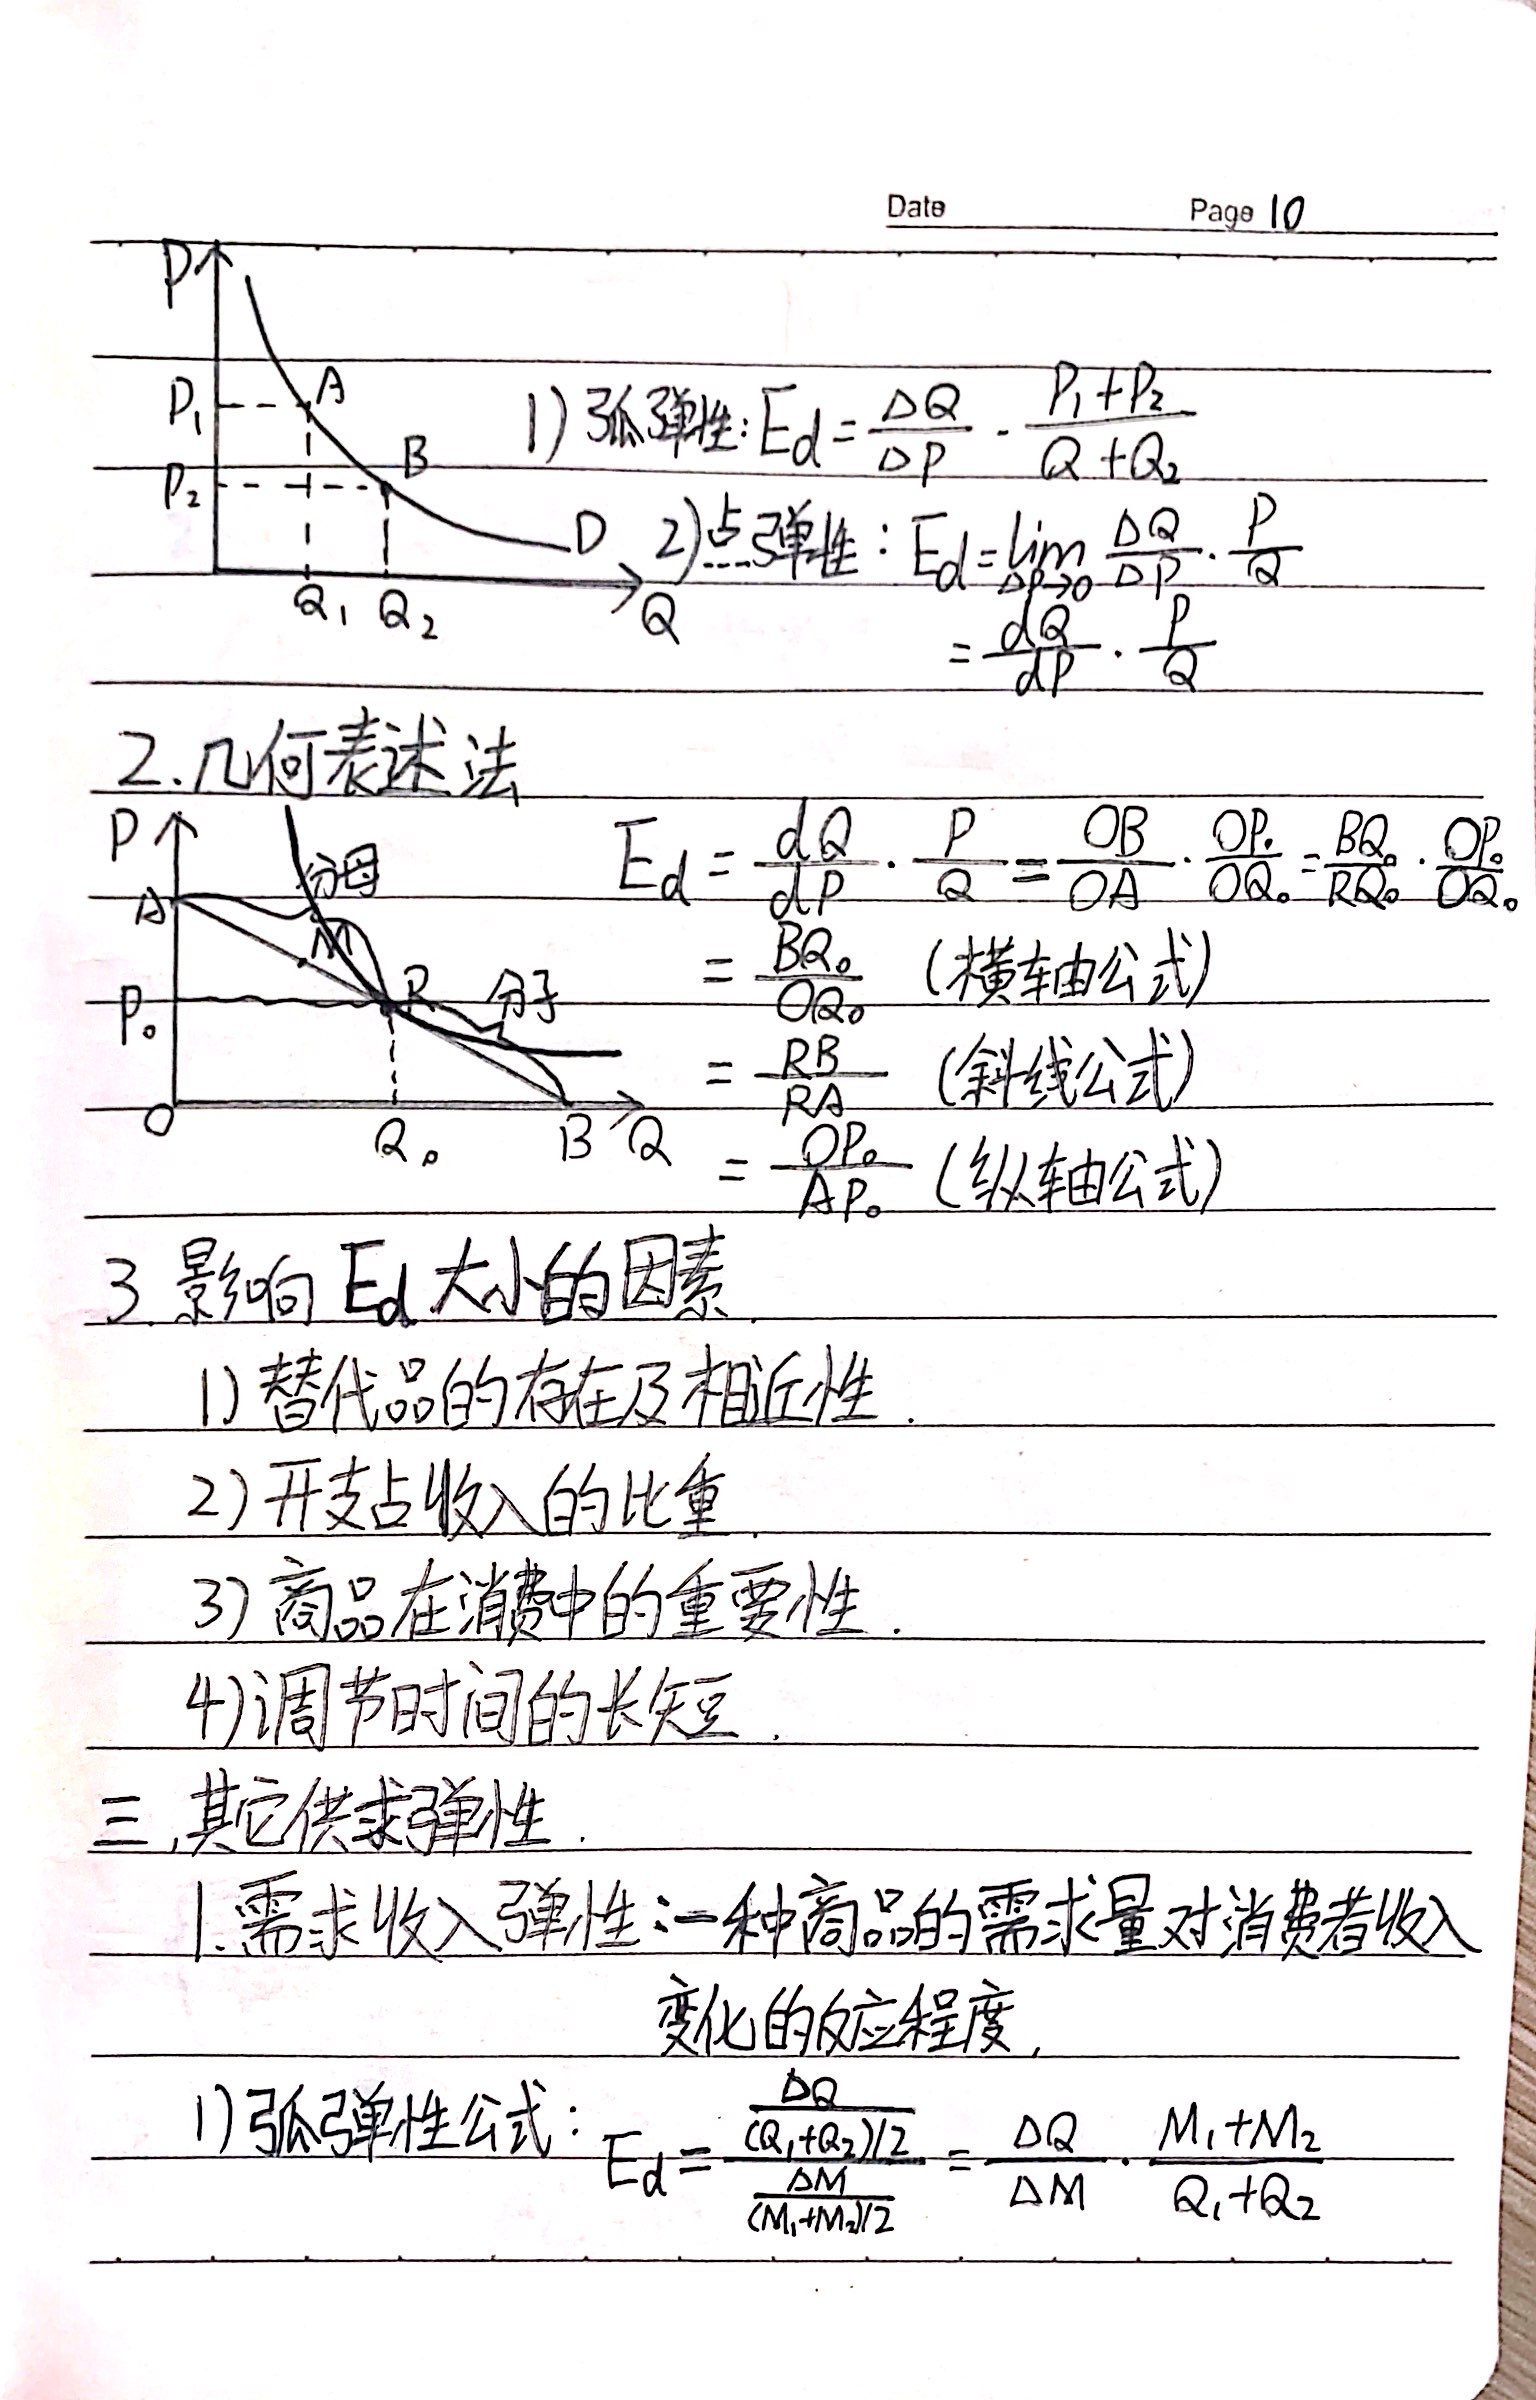 Date Page 10
P
P₁ A
P₂ B
D
Q₁ Q₂ Q
1) 弧弹性: Ed = ΔQ/ΔP · (P₁+P₂)/(Q+Q₂)
2) 点弹性: Ed = lim ΔP→0 ΔQ/ΔP · P/Q
= dQ/dP · P/Q
2. 几何表述法
P
分母
A
M
P₀ R 分子
O Q₀ B Q
Ed = dQ/dP · P/Q = OB/OA · OP₀/OQ₀ = BQ₀/RQ₀ · OP₀/OQ₀
= BQ₀/OQ₀ (横轴公式)
= RB/RA (斜线公式)
= OP₀/AP₀ (纵轴公式)
3. 影响 Ed 大小的因素.
1) 替代品的存在及相近性.
2) 开支占收入的比重.
3) 商品在消费中的重要性.
4) 调节时间的长短.
三、其它供求弹性.
1. 需求收入弹性: 一种商品的需求量对消费者收入
变化的反应程度.
1) 弧弹性公式: Ed = (ΔQ/((Q₁+Q₂)/2))/(ΔM/((M₁+M₂)/2)) = ΔQ/ΔM · (M₁+M₂)/(Q₁+Q₂)